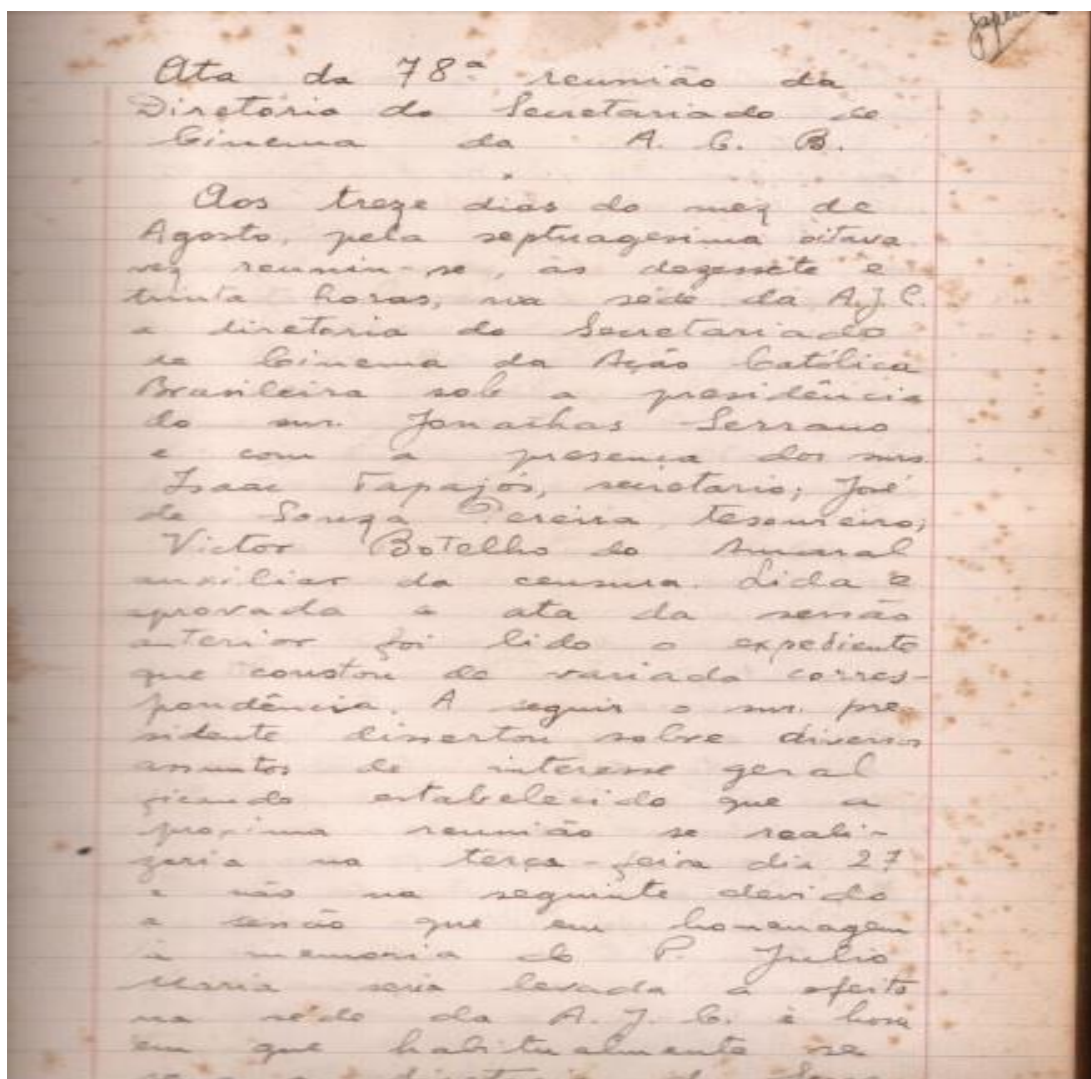 Ata da 78ª reunião da
Diretoria do Secretariado de
Cinema da A. C. B.
Aos treze dias do mez de
Agosto, pela septuagesima oitava
vez reuniu-se, as dezessete e
trinta horas, na séde da A.J.C.
a diretoria do Secretariado
de Cinema da Ação Católica
Brasileira sob a presidência
do snr. Jonathas Serrano
e com a presença dos snrs.
Isaac Tapajós, secretario; José
de Souza Pereira, tesoureiro;
Victor Botelho do Amaral
auxiliar da censura. Lida e
aprovada a ata da sessão
anterior foi lido o expediente
que constou de variada corres-
pondência. A seguir o snr. pre-
sidente dissertou sobre diversos
assuntos de interesse geral
ficando estabelecido que a
proxima reunião se reali-
zaria na terça-feira dia 27
e não na seguinte devido
a sessão que em homenagem
à memoria do P. Julio
Maria seria levada a efeito
na séde da A. J. C. à hora
em que habitualmente se